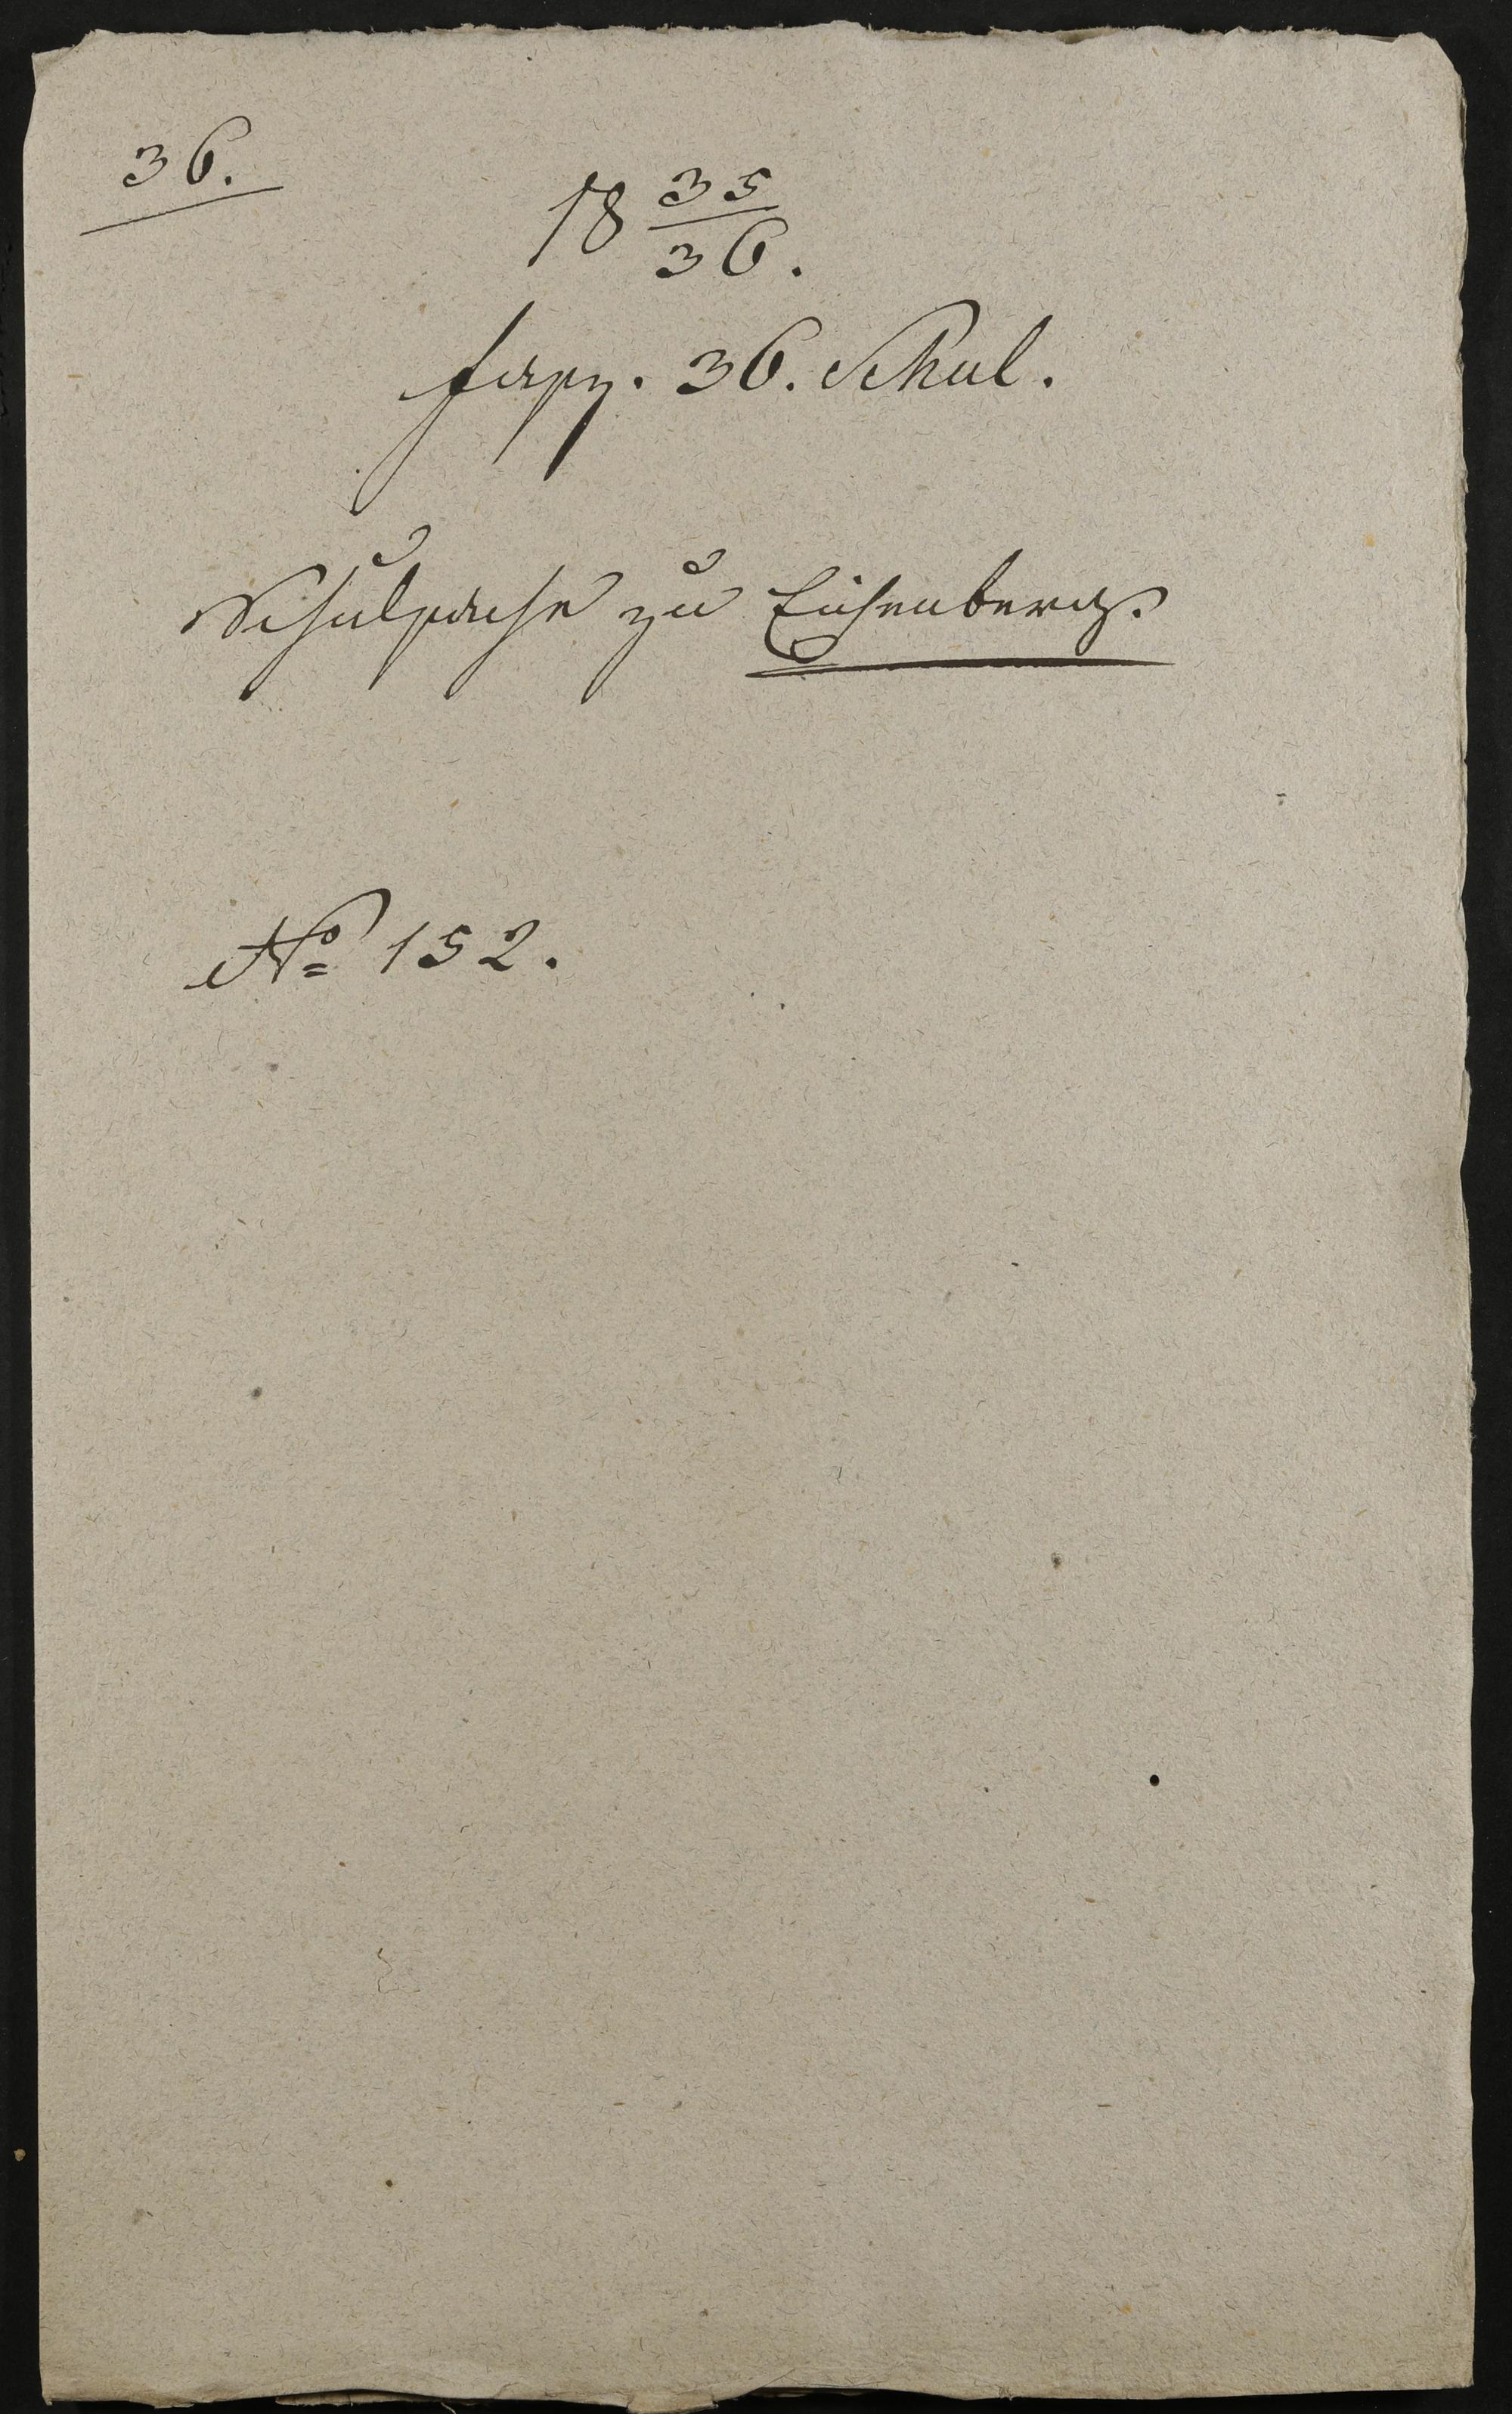 36.
18 35/36.
fasz. 36. Schul.
Schulsache zu Eichenberg.
No 152.